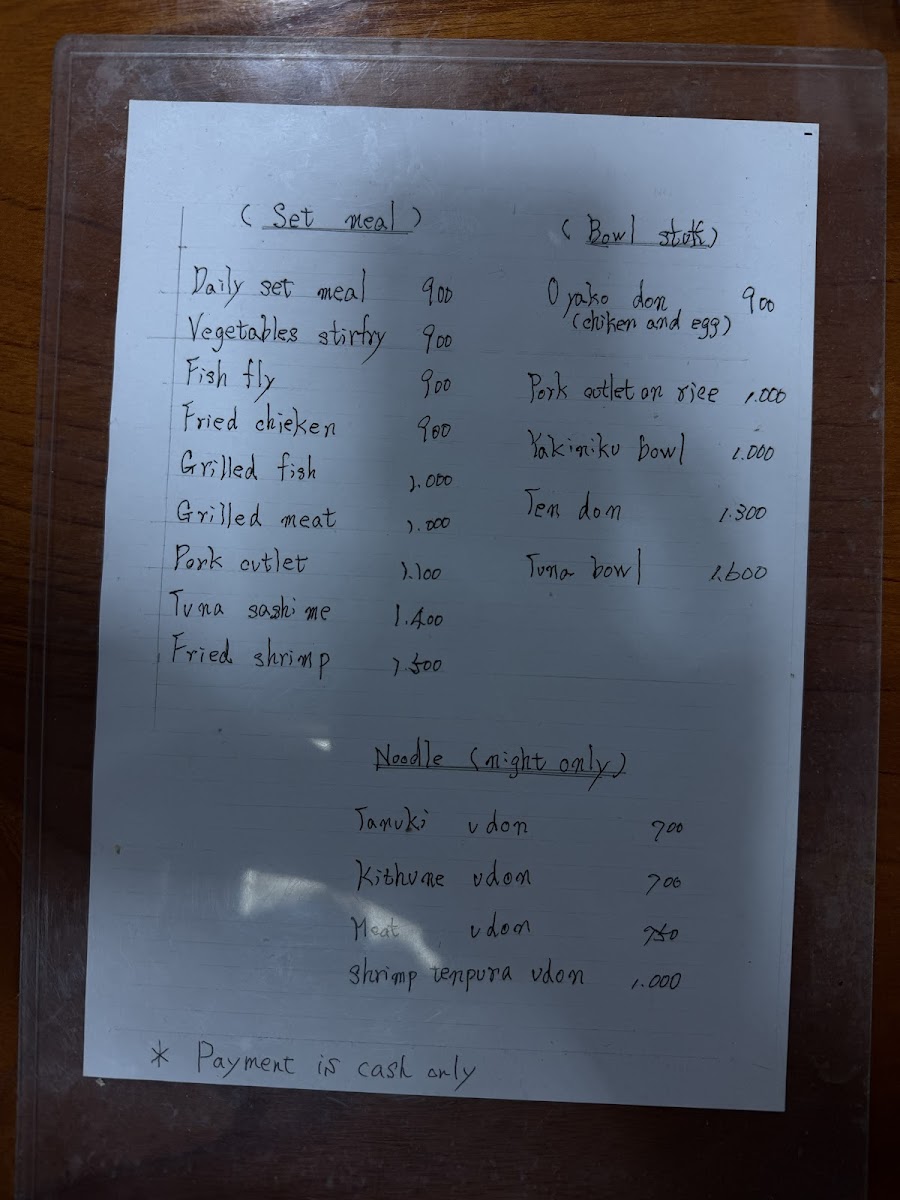 ( Set meal )
Daily set meal 900
Vegetables stirfry 900
Fish fly 900
Fried chicken 900
Grilled fish 1.000
Grilled meat 1.000
Pork cutlet 1.100
Tuna sashime 1.400
Fried shrimp 1.500
( Bowl stuff )
Oyako don 900
(chiken and egg)
Pork cutlet on rice 1.000
Yakiniku bowl 1.000
Ten don 1.300
Tuna bowl 1.600
Noodle (night only)
Tanuki udon 700
Kithune udon 700
Meat udon 750
Shrimp tenpura udon 1.000
* Payment is cash only